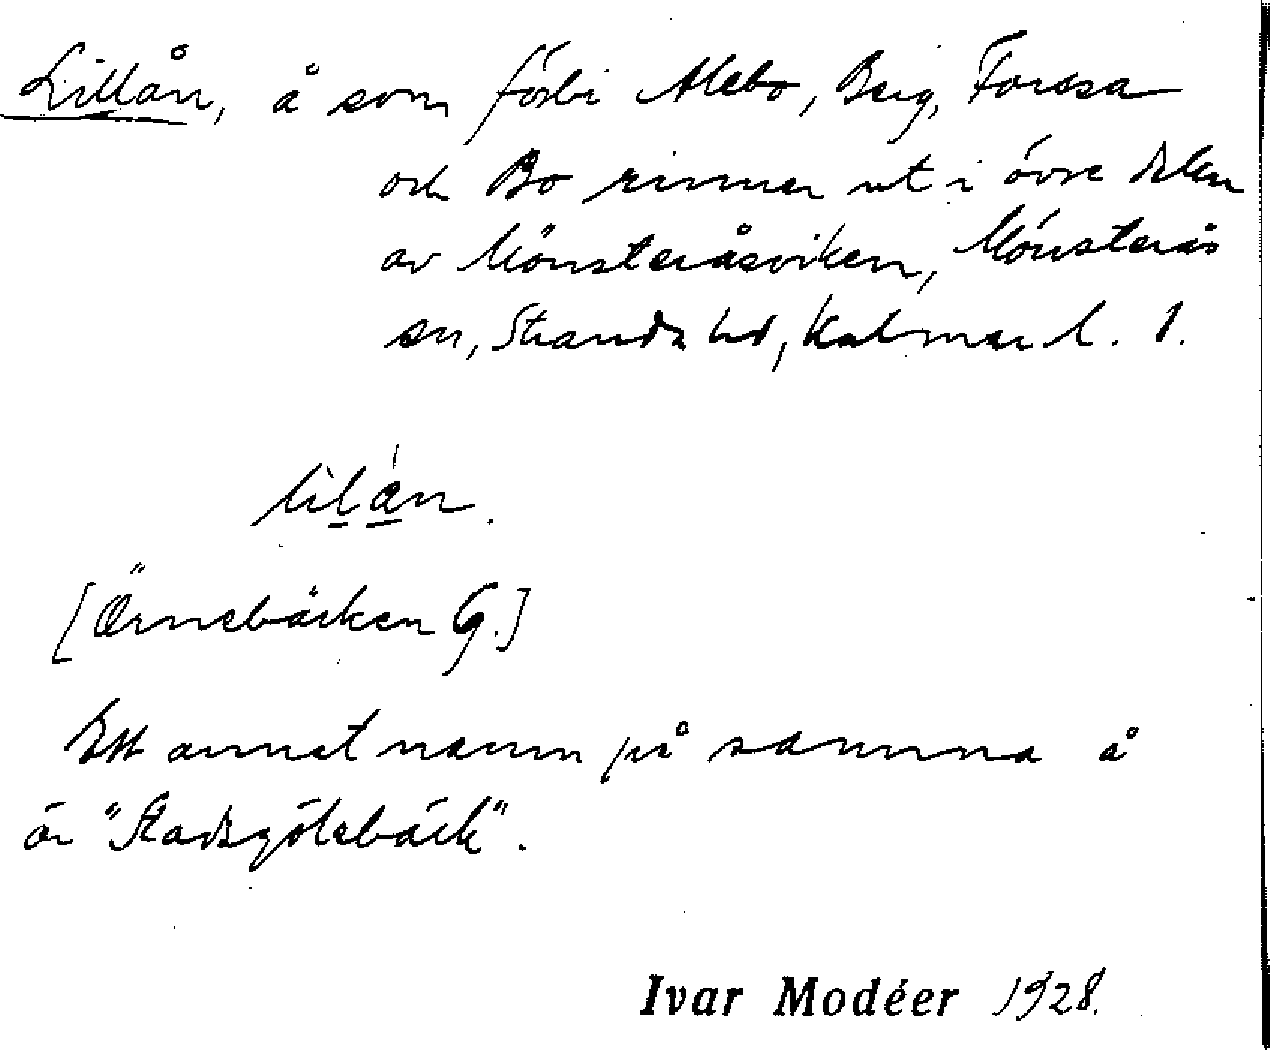 Lillån, å som förbi Alebo, Berg, Forssa
och Bo rinner ut i övre delen
av Mönsteråsviken, Mönsterås
sn, Stranda hd, Kalmar l. 1.
lilån.
[Örnebäcken G.]
Ett annat namn på samma å
är "Stadsgölebäck".
Ivar Modéer 1928.